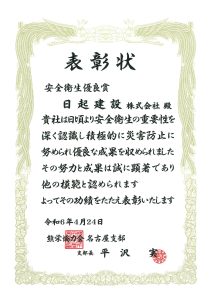 表彰状
安全衛生優良賞
日起建設 株式会社 殿
貴社は日頃より安全衛生の重要性を
深く認識し積極的に災害防止に
努められ優良な成果を収められました
その努力と成果は誠に顕著であり
他の模範と認められます
よってその功績をたたえ表彰いたします
令和6年4月24日
協力会 名古屋支部
支部長 平沢 実